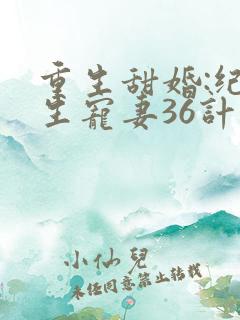 重生甜婚:纪
生寵妻36計
小仙兒
未經同意禁止轉載